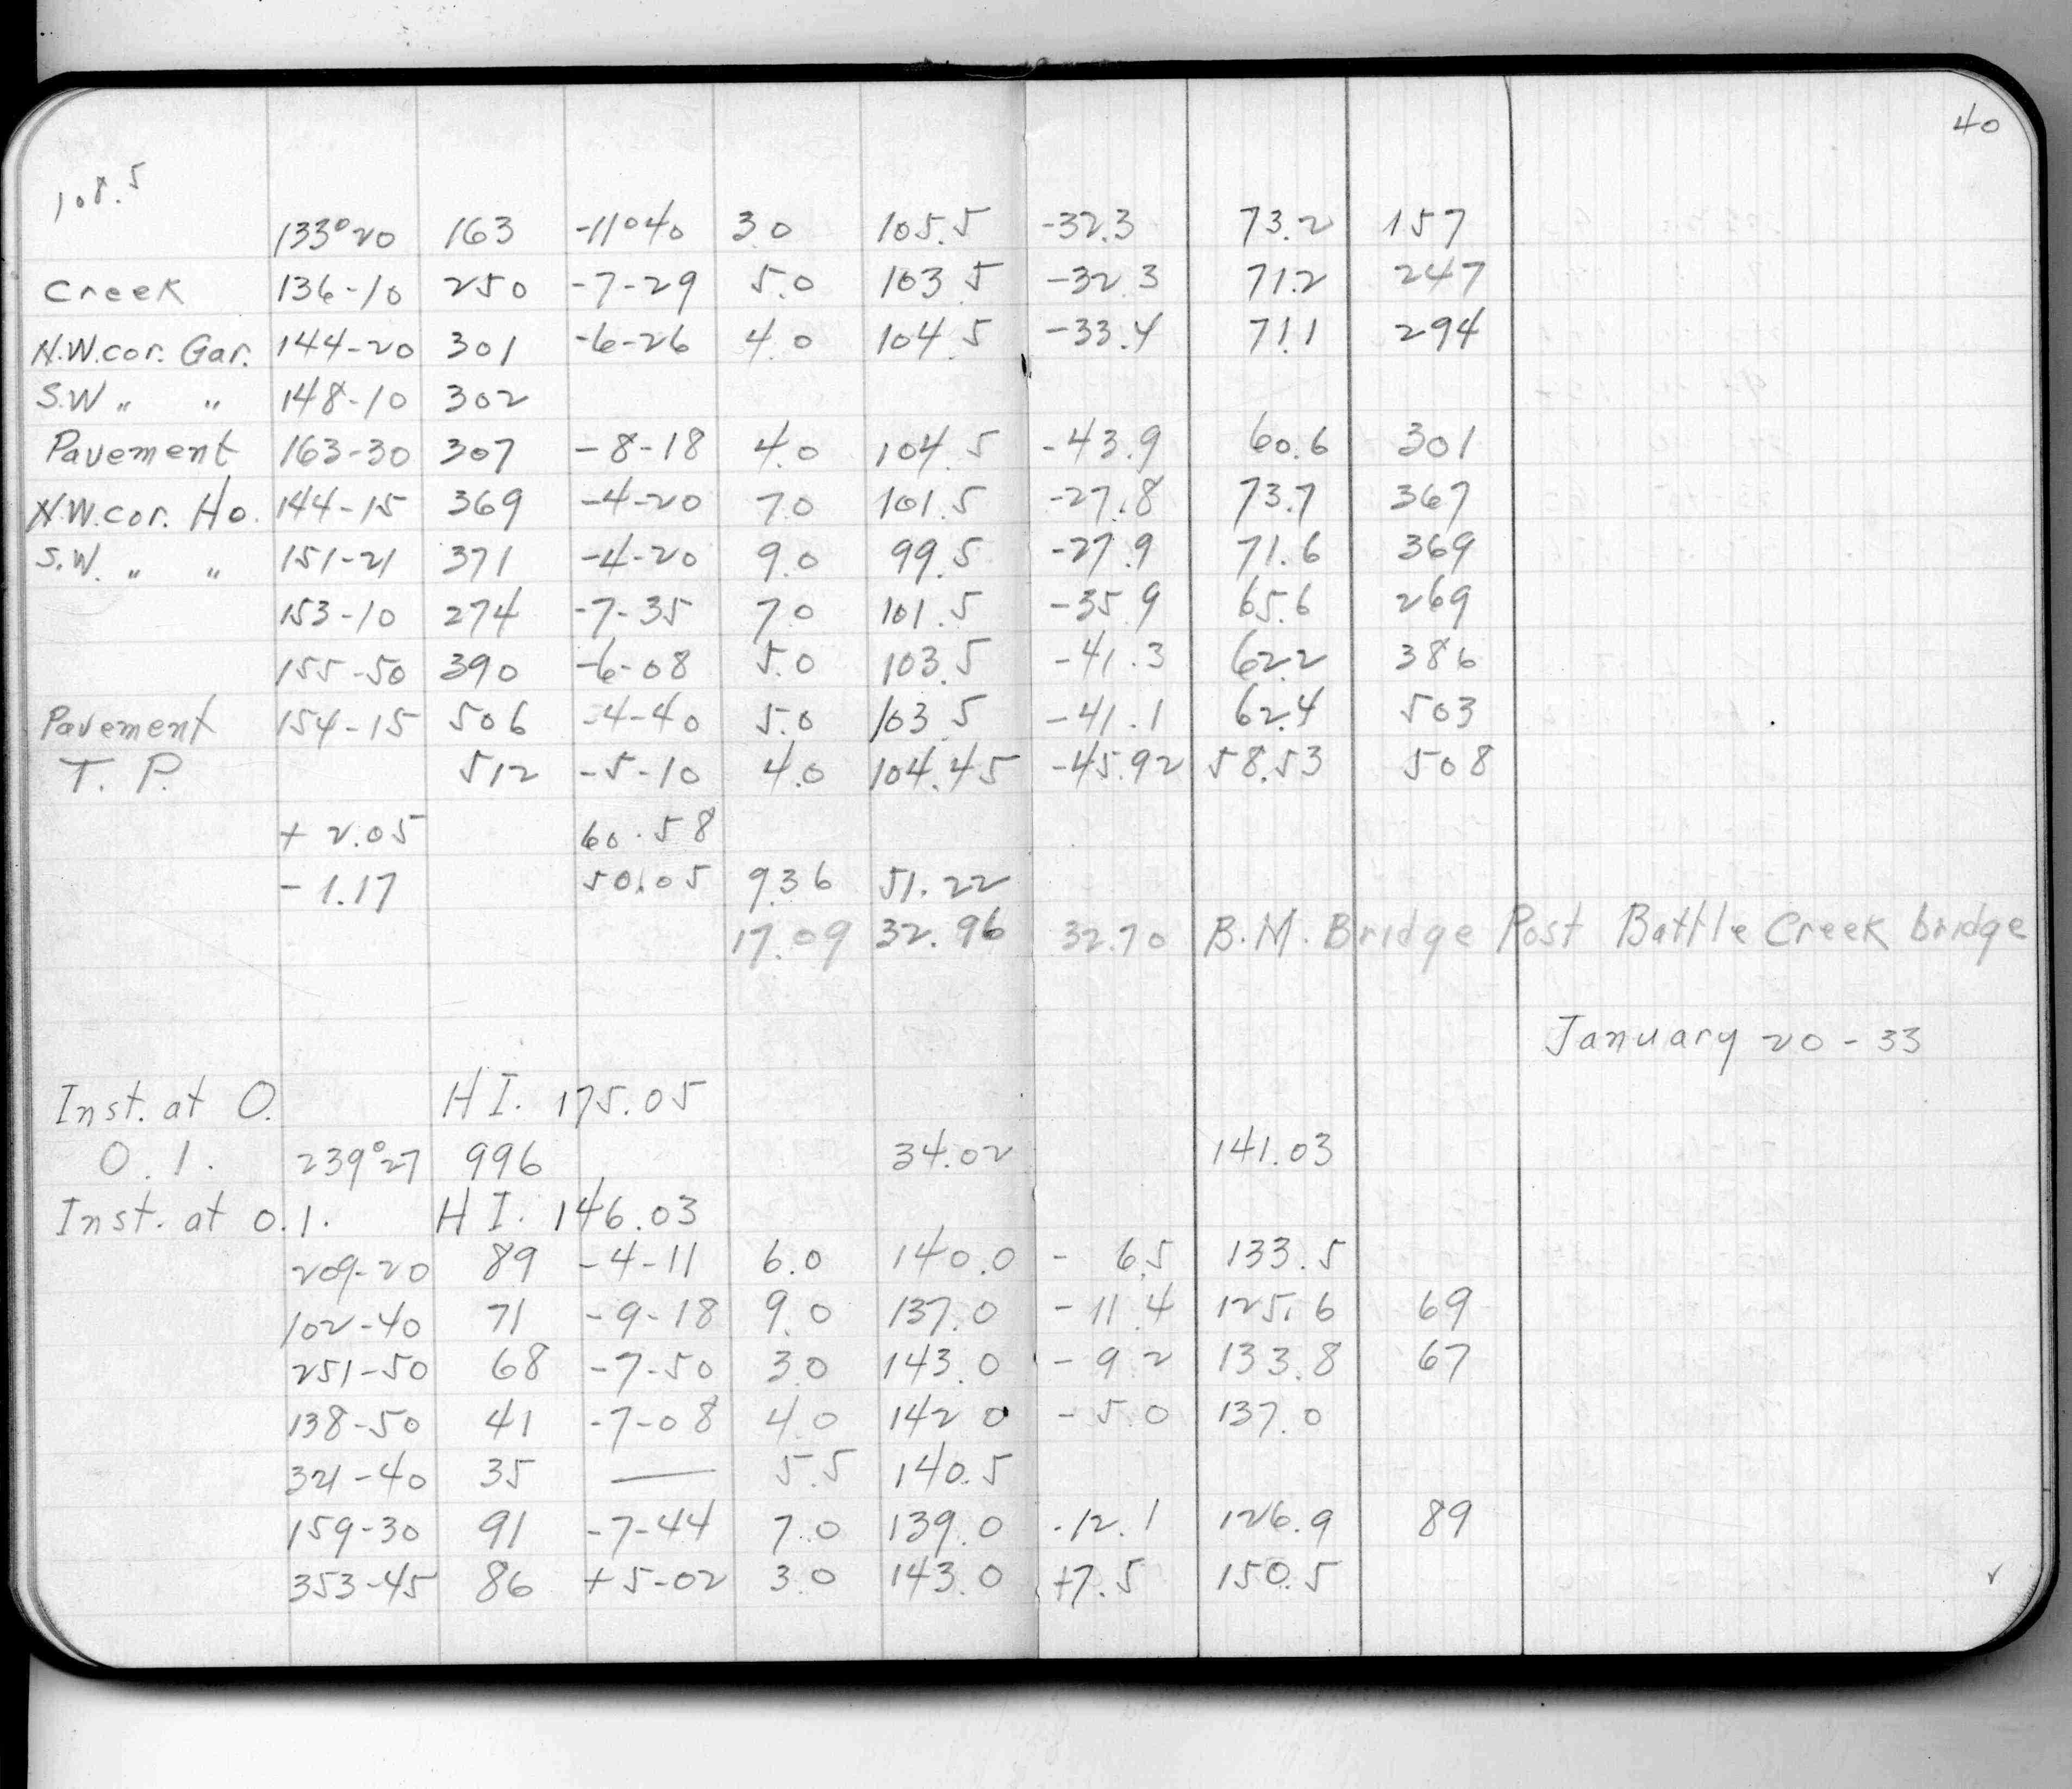 40
108.5
133°20 163 -11°40 3.0 105.5 -32.3 73.2 157
Creek 136-10 250 -7-29 5.0 103.5 -32.3 71.2 247
N.W.cor. Gar. 144-20 301 -6-26 4.0 104.5 -33.4 71.1 294
S.W " " 148-10 302
Pavement 163-30 307 -8-18 4.0 104.5 -43.9 60.6 301
N.W.cor. Ho. 144-15 369 -4-20 7.0 101.5 -27.8 73.7 367
S.W. " " 151-21 371 -4-20 9.0 99.5 -27.9 71.6 369
153-10 274 -7-35 7.0 101.5 -35.9 65.6 269
155-50 390 -6-08 5.0 103.5 -41.3 62.2 386
Pavement 154-15 506 -4-40 5.0 103.5 -41.1 62.4 503
T. P. 512 -5-10 4.0 104.45 -45.92 58.53 508
+ 2.05 60.58
- 1.17 50.05 9.36 51.22
17.09 32.96 32.70 B.M. Bridge Post Battle Creek bridge
January 20 - 33
Inst. at O. H I. 175.05
O. 1. 239°27 996 34.02 141.03
Inst. at O.1. H I. 146.03
209-20 89 -4-11 6.0 140.0 - 6.5 133.5
102-40 71 -9-18 9.0 137.0 - 11.4 125.6 69
251-50 68 -7-50 3.0 143.0 - 9.2 133.8 67
138-50 41 -7-08 4.0 142.0 - 5.0 137.0
321-40 35 — 5.5 140.5
159-30 91 -7-44 7.0 139.0 -12.1 126.9 89
353-45 86 +5-02 3.0 143.0 +7.5 150.5